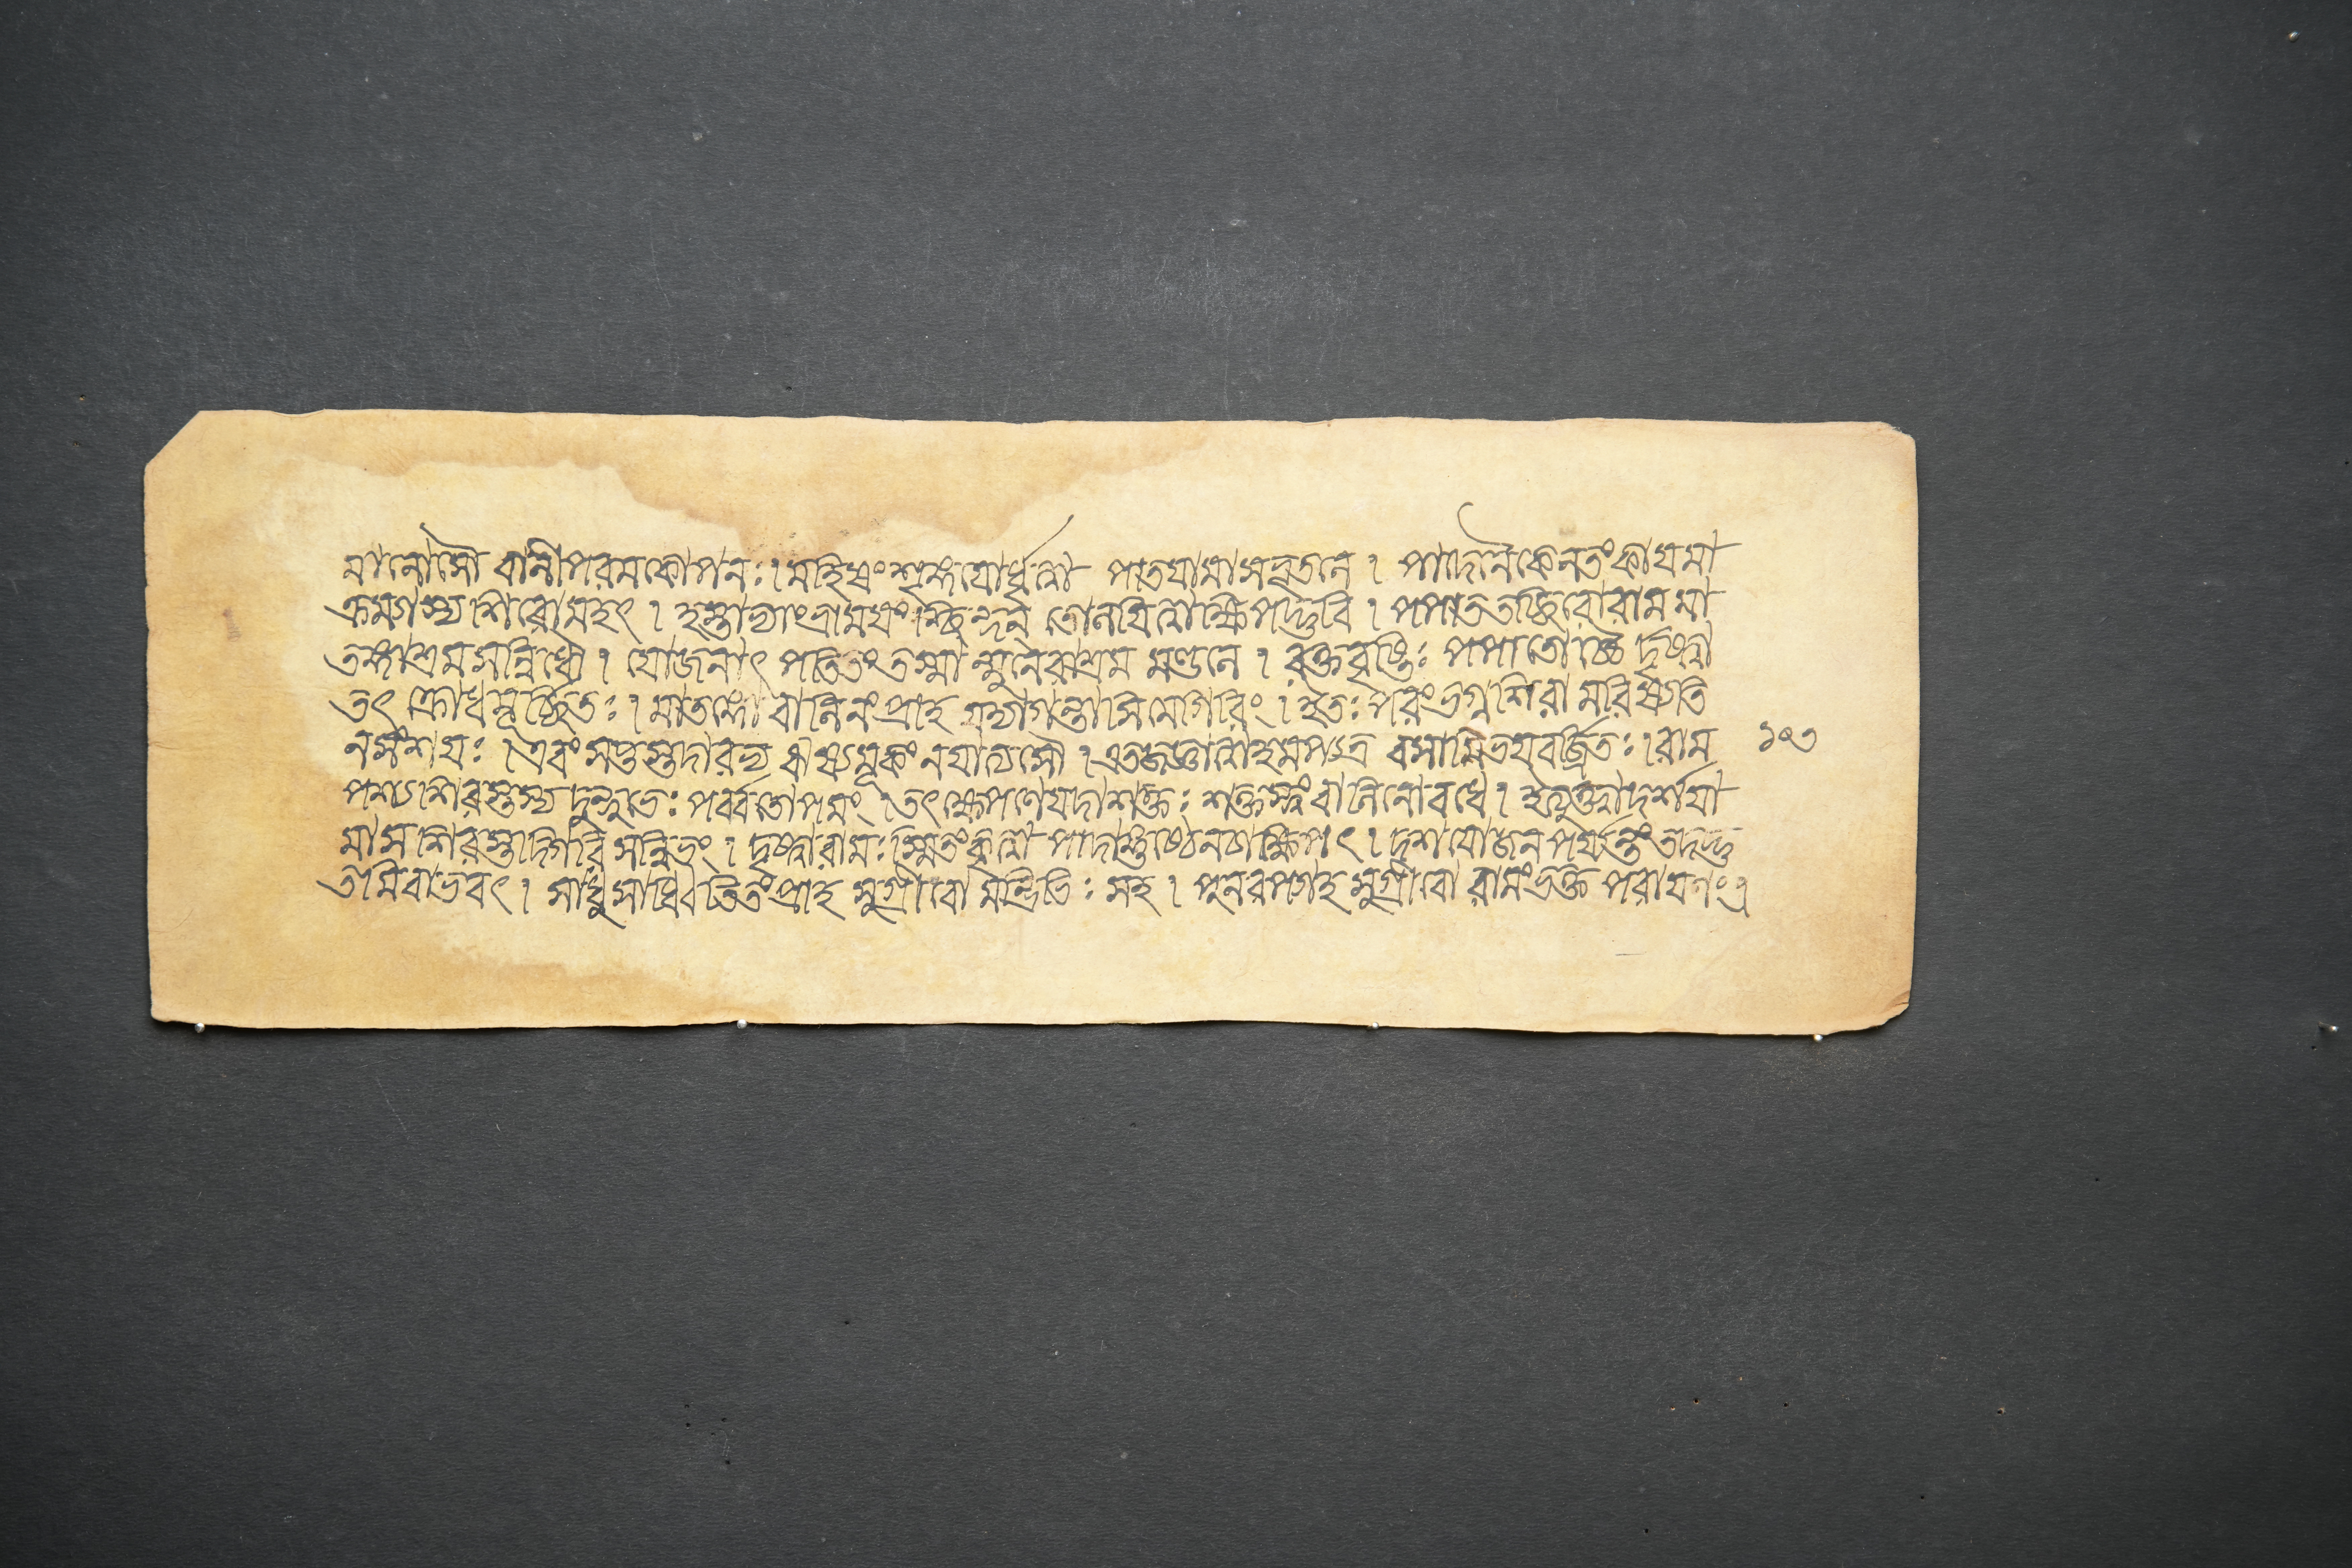 মানোসৌ বালীপরমকোপন: । মহিষং শৃঙ্গয়োর্ধৃত্বা পাতয়ামাসভূতলে । পাদেনৈকেনতংকায়মা
ক্রম্যাস্য শিরোমহৎ । হস্তাভ্যাংভ্রাময়ংশ্ছিন্দন্ তোলয়িত্বাক্ষিপদ্ভুবি । পপাততচ্ছিরোরাম মা
তঙ্গাশ্রম সন্নিধৌ । যোজনাৎ পতিতংতস্মা ন্মুনেরাশ্রম মণ্ডলে । রক্তবৃষ্টি: পপাতোচ্চৈ র্দৃষ্ট্বা
তৎ ক্রোধমূর্চ্ছিত: । মাতঙ্গো বালিনংপ্রাহ যদ্যাগন্তাসিমেগিরিং । ইত: পরংভগ্নশিরা মরিষ্যতি
নসংশয়: । এবং শপ্তস্তদারভ্য ঋষ্যমূকং নযাত্যসৌ । এতজ্জ্ঞাত্বাহমপ্যত্র বসামিভয়বর্জ্জিত: । রাম
পশ্যশিরস্তস্য দুন্দুভে: পর্ব্বতোপমং । তৎক্ষেপণেযদাশক্ত: শক্তস্ত্বংবালিনোবধে । ইত্যুক্ত্বাদর্শয়া
মাস শিরস্তদ্গিরি সন্নিভং । দৃষ্ট্বারাম: স্মিতংকৃত্বা পাদাঙ্গুষ্ঠেনচাক্ষিপৎ । দশযোজন পর্য্যন্তং তদদ্ভু
তমিবাভবৎ । সাধুসাধ্বিতিতংপ্রাহ সুগ্রীবো মন্ত্রিভি: সহ । পুনরপ্যাহ সুগ্রীবো রামংভক্ত পরায়ণং ।
১০৩